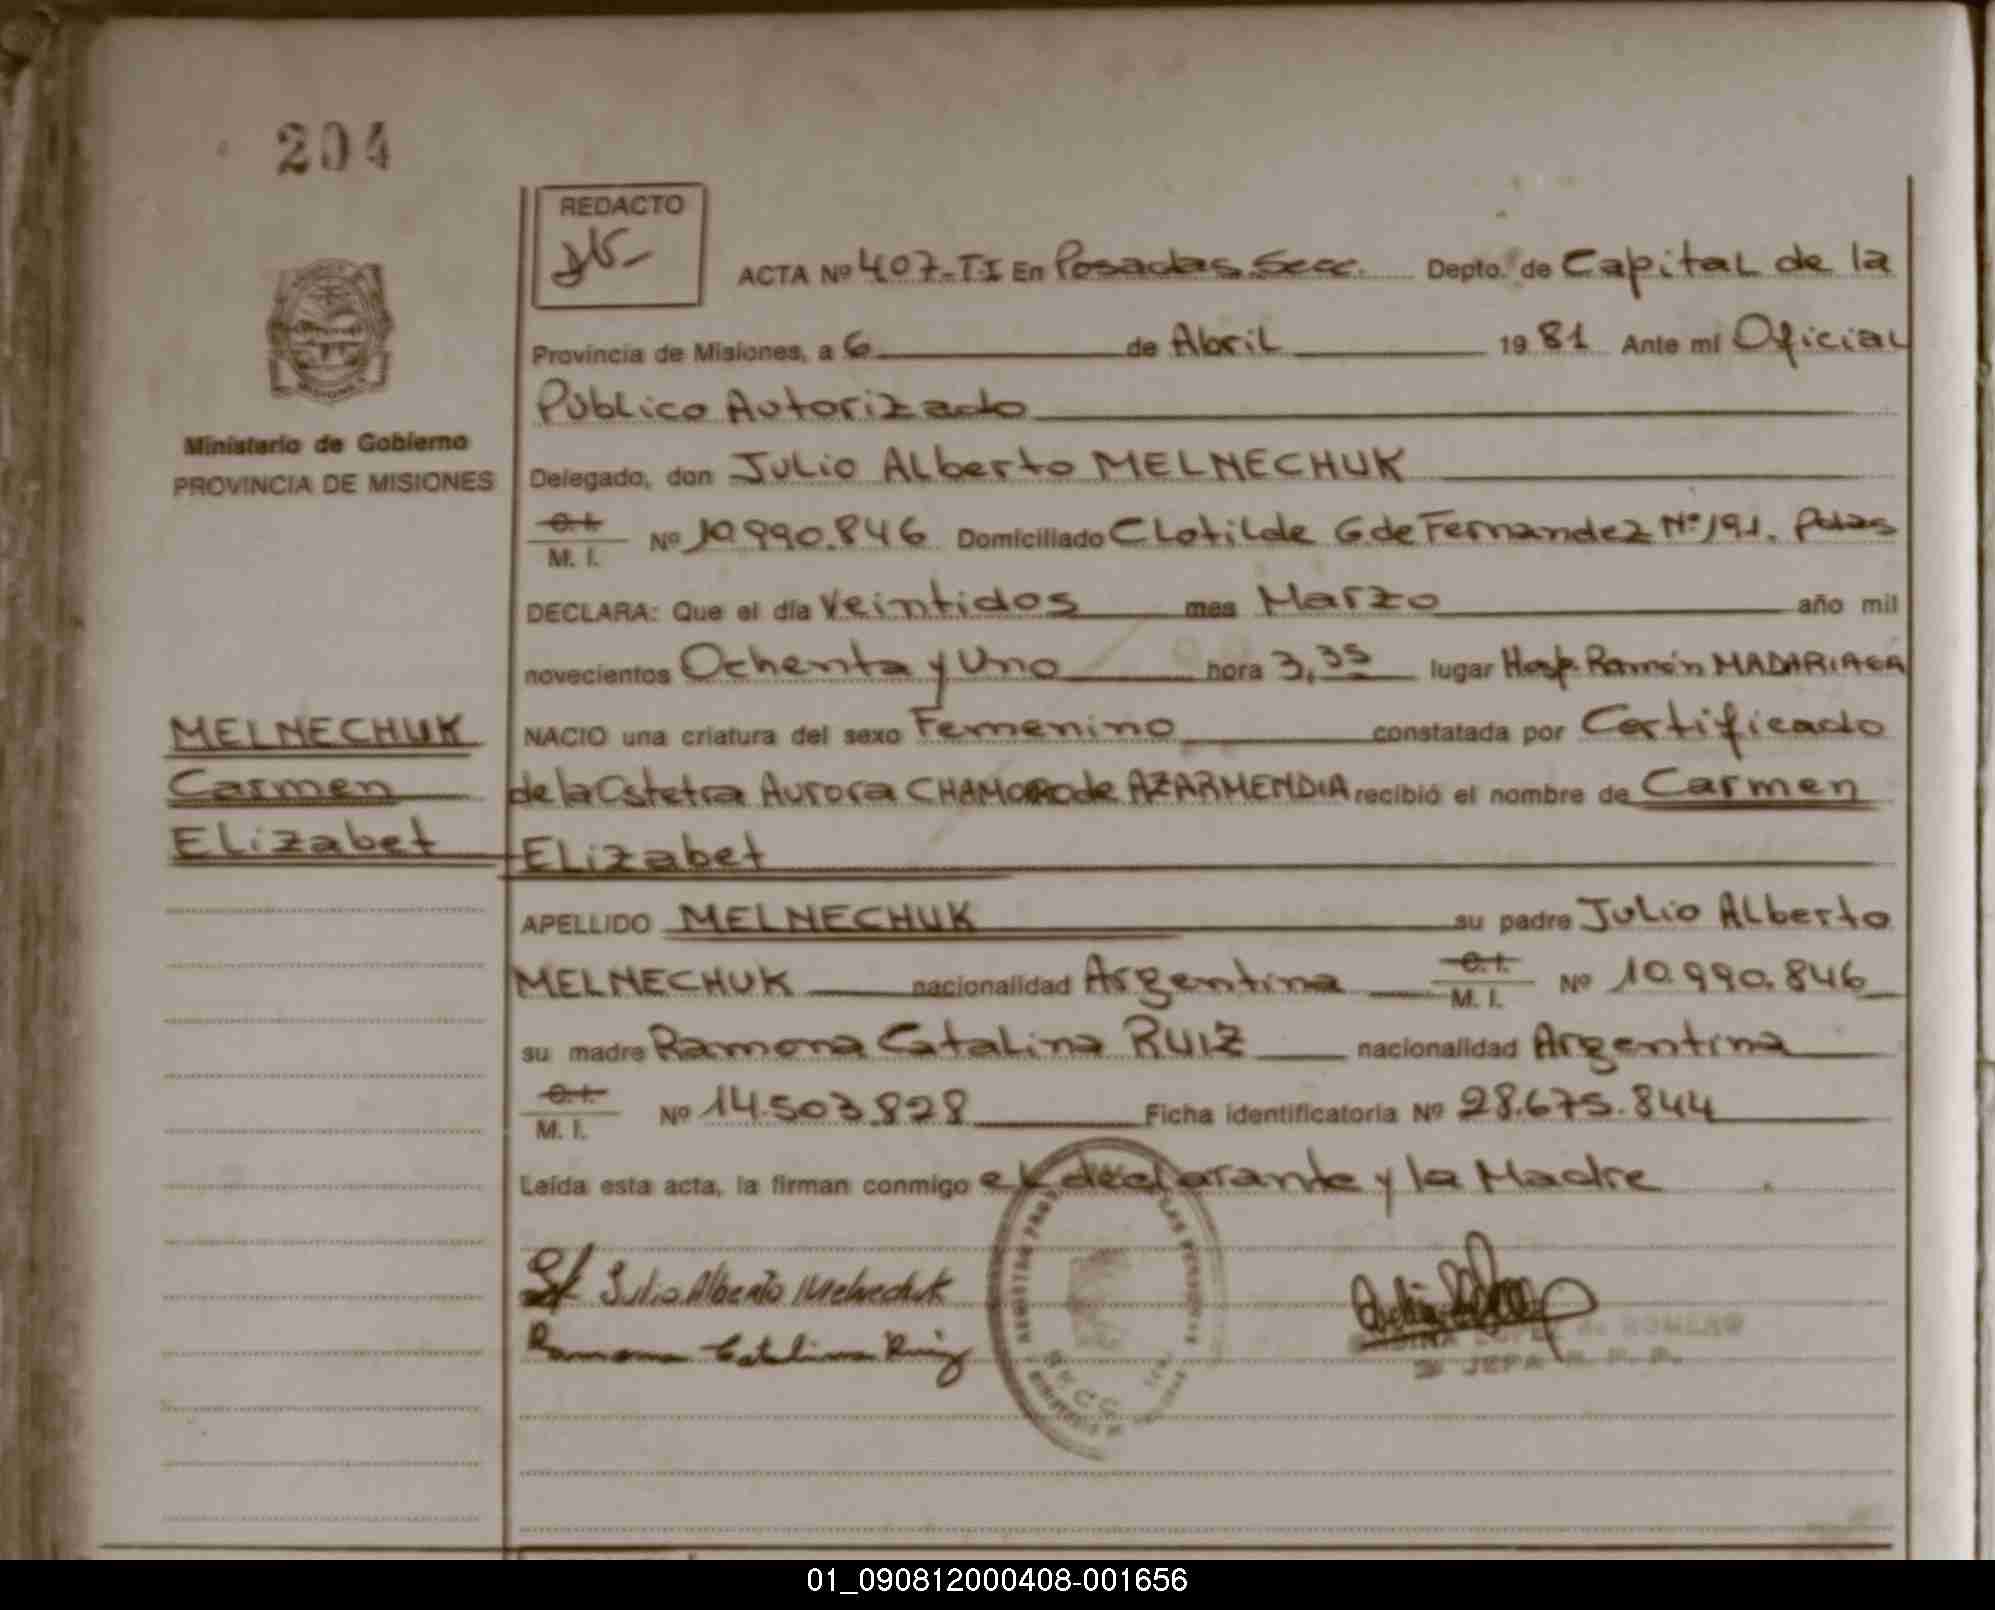 204
REDACTO
ACTA Nº 407-TI En Posadas Secc. Depto. de Capital de la
Provincia de Misiones, a 6 de Abril 1981 Ante mi Oficial
Público Autorizado
Ministerio de Gobierno
PROVINCIA DE MISIONES
Delegado, don Julio Alberto MELNECHUK
C.I.
M. I. Nº 10.990.846 Domiciliado Clotilde G. de Fernandez Nº 191. Pdas
DECLARA: Que el día Veintidos mes Marzo año mil
novecientos Ochenta y Uno hora 3,35 lugar Hosp. Ramón MADARIAGA
MELNECHUK
Carmen
Elizabet
NACIO una criatura del sexo Femenino constatada por Certificado
de la Ostetra Aurora de AZARMENDIA recibió el nombre de Carmen
Elizabet
APELLIDO MELNECHUK su padre Julio Alberto
MELNECHUK nacionalidad Argentina C.I. M. I. Nº 10.990.846
su madre Ramona Catalina RUIZ nacionalidad Argentina
C.I.
M. I. Nº 14.503.828 Ficha identificatoria Nº 28.675.844
Leída esta acta, la firman conmigo el declarante y la Madre
Julio Alberto Melnechuk
Ramona Catalina Ruiz
LOPEZ de ROMERO
JEFA R. P. P.
01_090812000408-001656